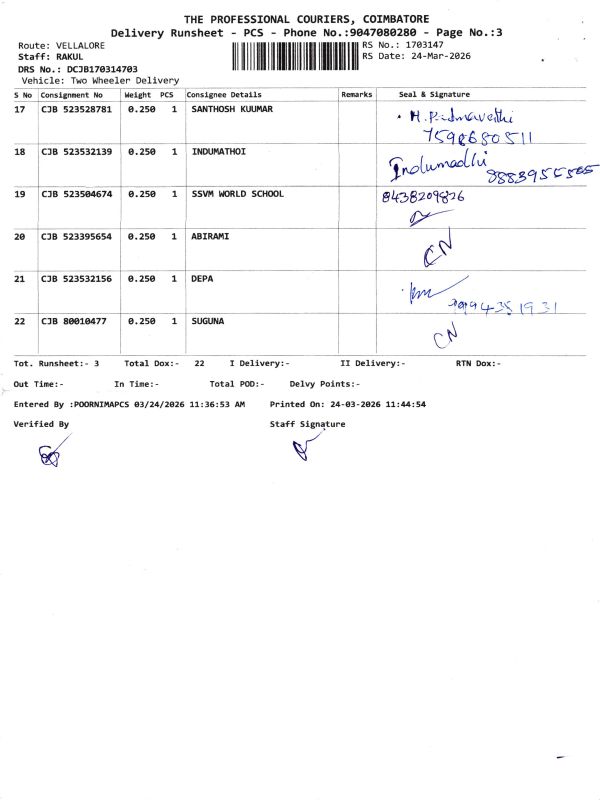 THE PROFESSIONAL COURIERS, COIMBATORE
Delivery Runsheet - PCS - Phone No.:9047080280 - Page No.:3
Route: VELLALORE RS No.: 1703147
Staff: RAKUL RS Date: 24-Mar-2026
DRS No.: DCJB170314703
Vehicle: Two Wheeler Delivery
S No Consignment No Weight PCS Consignee Details Remarks Seal & Signature
17 CJB 523528781 0.250 1 SANTHOSH KUUMAR H. Padmavathi
7598680511
18 CJB 523532139 0.250 1 INDUMATHOI Indumadhi
19 CJB 523504674 0.250 1 SSVM WORLD SCHOOL 8438209826
20 CJB 523395654 0.250 1 ABIRAMI CN
21 CJB 523532156 0.250 1 DEPA
22 CJB 80010477 0.250 1 SUGUNA CN
Tot. Runsheet:- 3 Total Dox:- 22 I Delivery:- II Delivery:- RTN Dox:-
Out Time:- In Time:- Total POD:- Delvy Points:-
Entered By :POORNIMAPCS 03/24/2026 11:36:53 AM Printed On: 24-03-2026 11:44:54
Verified By Staff Signature